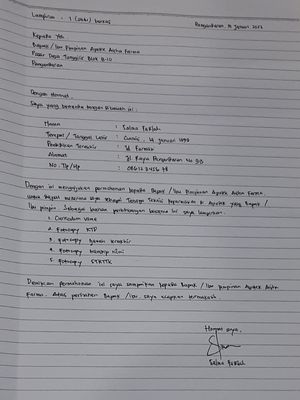 Lampiran : 1 (satu) berkas
Pangandaran, 14 Januari 2022
Kepada Yth
Bapak / Ibu Pimpinan Apotek Aisha Farma
Pasar Desa Blok B-10
Pangandaran
Dengan Hormat,
Saya yang bertanda tangan dibawah ini :
Nama : Salma Fadilah
Tempat / Tanggal Lahir : Ciamis, 4 Januari 1999
Pendidikan Terakhir : D3 Farmasi
Alamat : Jl. Raya Pangandaran No
No. Tlp / Hp :
Dengan ini mengajukan permohonan kepada Bapak / Ibu Pimpinan Apotek Aisha Farma,
untuk dapat menjadi Tenaga Teknis Kefarmasian di Apotek yang Bapak /
Ibu pimpin. Sebagai bahan pertimbangan bersama ini saya lampirkan :
1. Curiculum Vitae
2. Fotocopy KTP
3. Fotocopy Ijazah terakhir
4. Fotocopy transkip nilai
5. Fotocopy STRTTK
Demikian permohonan ini saya sampaikan kepada Bapak / Ibu Pimpinan Apotek Aisha
Farma. Atas perhatian Bapak / Ibu, saya ucapkan terimakasih.
Hormat saya,
Salma Fadilah